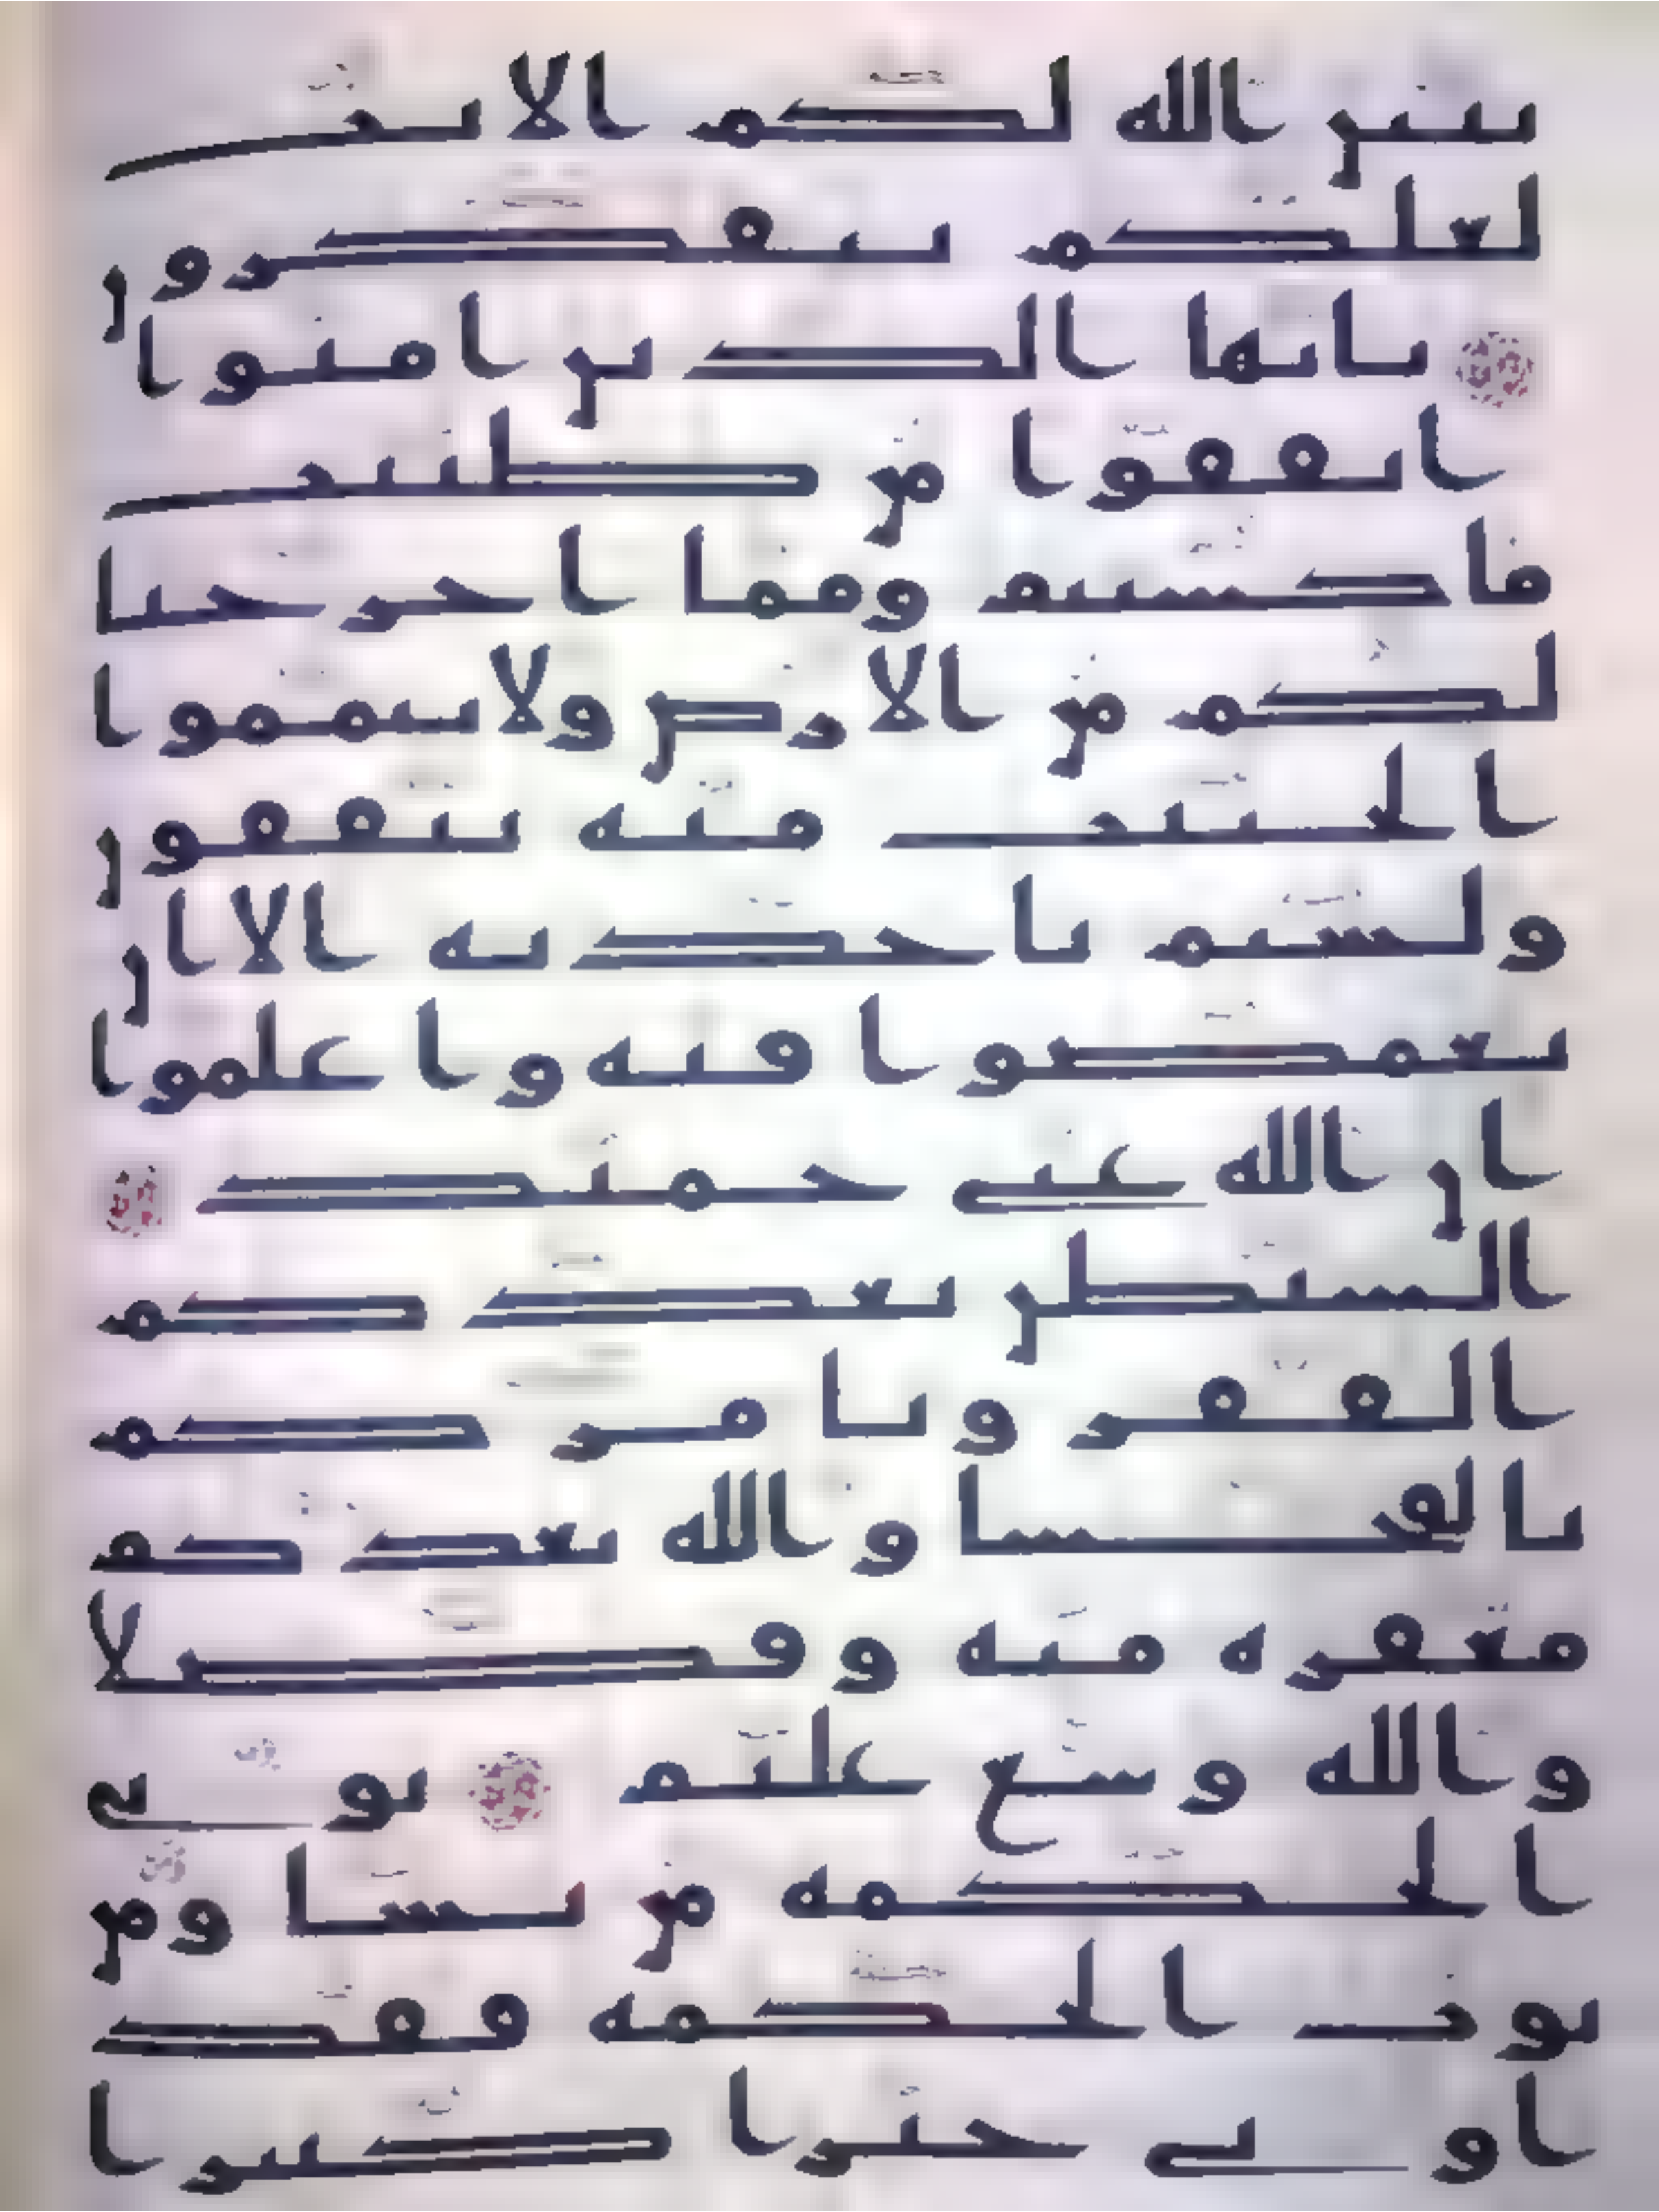 يبين الله لكم الايت
لعلكم تتفكرون
يايها الذين امنوا
انفقوا من طيبت
ما كسبتم ومما اخرجنا
لكم من الارض ولا تيمموا
الخبيث منه تنفقون
ولستم باخذيه الا ان
تغمضوا فيه واعلموا
ان الله غني حميد
الشيطن يعدكم
الفقر ويامركم
بالفحشا والله يعدكم
مغفره منه وفضلا
والله وسع عليم يوتي
الحكمه من يشا ومن
يوت الحكمه فقد
اوتي خيرا كثيرا